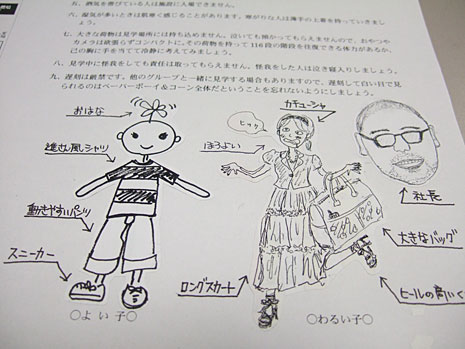 五、酒気を帯びている人は施設に入場できません。
六、湿気が多いときは肌寒く感じることがあります。寒がりな人は薄手の上着を持っていきましょ
う。
七、大きな荷物は見学場所には持ち込めません。泣いても預かってもらえませんので、おやつや
カメラは欲張らずコンパクトに。その荷物を持って116段の階段を往復できる体力があるか、
己の胸に手を当てて冷静に考えてみましょう。
八、見学中に怪我をしても責任は取ってもらえません。怪我をした人は泣き寝入りしましょう。
九、遅刻は厳禁です。他のグループと一緒に見学する場合もありますので、遅刻して白い目で見
られるのはペーパーボーイ&コーン全体だということを忘れないようにしましょう。
おはな
楳さん風シャツ
動きやすいパンツ
スニーカー
○よい子○
カチューシャ
ヒック
ほろよい
社長
大きなバッグ
ロングスカート
ヒールの高いく
○わるい子○